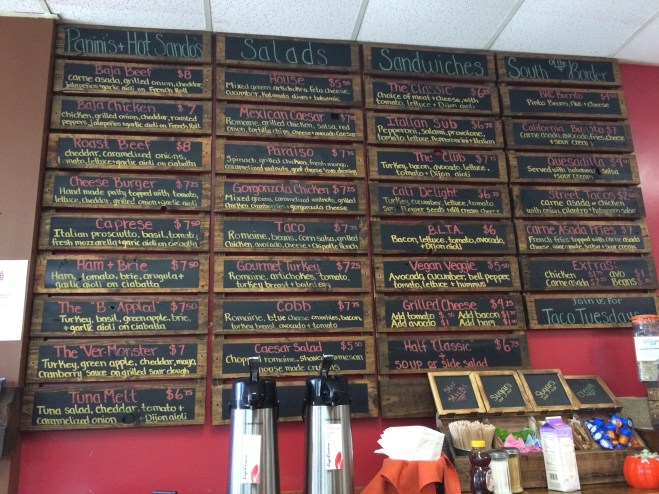 Panini's + Hot Sando's
Baja Beef $8
carne asada, grilled onion, cheddar,
jalapeños + garlic aioli on French Roll
Baja Chicken $7
Chicken, grilled onion, cheddar, roasted
peppers, jalapeños + garlic aioli on French Roll
Roast Beef $8
cheddar, caramelized onions,
tomato, lettuce + garlic aioli on ciabatta
Cheese Burger $7.25
Hand made patty topped with tomato,
lettuce, cheddar, grilled onions + garlic aioli
Caprese $7.50
Italian prosciutto, basil, tomato,
fresh mozzarella + garlic aioli on ciabatta
Ham + Brie $7.50
Ham, tomato, brie, arugula +
garlic aioli on ciabatta
The "B. Appled" $7.50
Turkey, basil, green apple, brie,
+ garlic aioli on ciabatta
The "Ver-Monster $7
Turkey, green apple, cheddar, mayo,
cranberry sauce on grilled sour dough
Tuna Melt $6.75
Tuna salad, cheddar, tomato +
caramelized onion + Dijon aioli
Salads
House $5.50
Mixed greens, artichokes, feta cheese,
cucumber, kalamata olives + balsamic
Mexican Caesar
Romaine, grilled chicken, salsa, red
onion, tortilla chips
Paraiso $7.75
Spinach, grilled chicken, fresh mango,
caramelized walnuts, goat cheese
Gorgonzola Chicken $7.75
Mixed greens, caramelized walnuts, grilled
chicken, cranberries + gorgonzola cheese
Taco $7.25
Romaine, beans, corn salsa, grilled
chicken, avocado, cheese + Chipotle Ranch
Gourmet Turkey $7.25
Romaine, artichokes, tomato,
turkey breast +
Cobb $7.75
Romaine, blue cheese crumbles, bacon,
turkey breast, avocado + tomato
Caesar Salad $5.50
Chopped romaine, shaved parmesan
house made croutons
Sandwiches
The Classic $6.25
Choice of meat + cheese, with
tomato, lettuce + Dijon aioli
Italian Sub $6.75
Pepperoni, salami, provolone,
tomato, lettuce, Pepperoncini + Italian
The Club $7.75
Turkey, bacon, avocado, lettuce,
tomato + Dijon aioli
Cali Delight $6.75
Turkey, cucumber, lettuce, tomato
+ Sun flower seeds with cream cheese
B.L.T.A. $6
Bacon, lettuce, tomato, avocado,
+ Dijon aioli
Vegan Veggie $5.50
Avocado, cucumber, bell pepper,
tomato, lettuce + hummus
Grilled Cheese $4.25
Add tomato $.50 Add bacon $1.50
Add avocado $1 Add ham $1.50
Half Classic $6.75
+
soup or side salad
South of the Border
BRC Burrito
Pinto Beans, rice + Cheese
California Burrito $7
carne asada, avocado, fries, cheese
+ sour cream
Quesadilla $4.50
Served with habanero salsa
+ sour cream
Street Tacos $2
carne asada or chicken with
onion, cilantro + habanero salsa
Carne Asada Fries
French fries topped with carne asada,
cheese, avocado + sour cream
Extras
chicken avo $1
Carne Asada Beans
Join us for
Taco Tuesday
Sugar